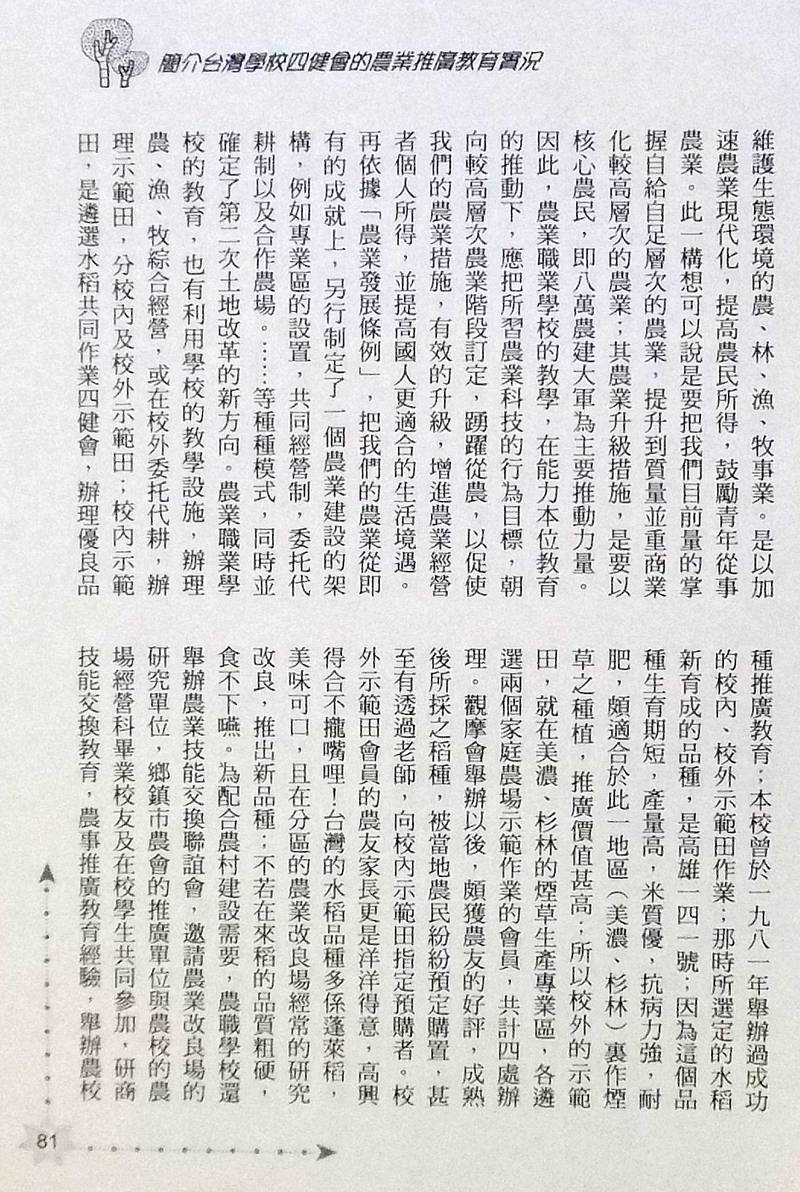 簡介台灣學校四健會的農業推廣教育實況
維護生態環境的農、林、漁、牧事業。是以加
速農業現代化，提高農民所得，鼓勵青年從事
農業。此一構想可以說是要把我們目前量的掌
握自給自足層次的農業，提升到質量並重商業
化較高層次的農業；其農業升級措施，是要以
核心農民，即八萬農建大軍為主要推動力量。
因此，農業職業學校的教學，在能力本位教育
的推動下，應把所習農業科技的行為目標，朝
向較高層次農業階段訂定，踴躍從農，以促使
我們的農業措施，有效的升級，增進農業經營
者個人所得，並提高國人更適合的生活境遇。
再依據「農業發展條例」，把我們的農業從即
有的成就上，另行制定了一個農業建設的架
構，例如專業區的設置，共同經營制，委托代
耕制以及合作農場。……等種種模式，同時並
確定了第二次土地改革的新方向。農業職業學
校的教育，也有利用學校的教學設施，辦理
農、漁、牧綜合經營，或在校外委托代耕，辦
理示範田，分校內及校外示範田；校內示範
田，是遴選水稻共同作業四健會，辦理優良品
種推廣教育；本校曾於一九八一年舉辦過成功
的校內、校外示範田作業；那時所選定的水稻
新育成的品種，是高雄一四一號；因為這個品
種生育期短，產量高，米質優，抗病力強，耐
肥，頗適合於此一地區（美濃、杉林）裏作煙
草之種植，推廣價值甚高；所以校外的示範
田，就在美濃、杉林的煙草生產專業區，各遴
選兩個家庭農場示範作業的會員，共計四處辦
理。觀摩會舉辦以後，頗獲農友的好評，成熟
後所採之稻種，被當地農民紛紛預定購置，甚
至有透過老師，向校內示範田指定預購者。校
外示範田會員的農友家長更是洋洋得意，高興
得合不攏嘴哩！台灣的水稻品種多係蓬萊稻，
美味可口，且在分區的農業改良場經常的研究
改良，推出新品種；不若在來稻的品質粗硬，
食不下嚥。為配合農村建設需要，農職學校還
舉辦農業技能交換聯誼會，邀請農業改良場的
研究單位，鄉鎮市農會的推廣單位與農校的農
場經營科畢業校友及在校學生共同參加，研商
技能交換教育，農事推廣教育經驗，舉辦農校
81